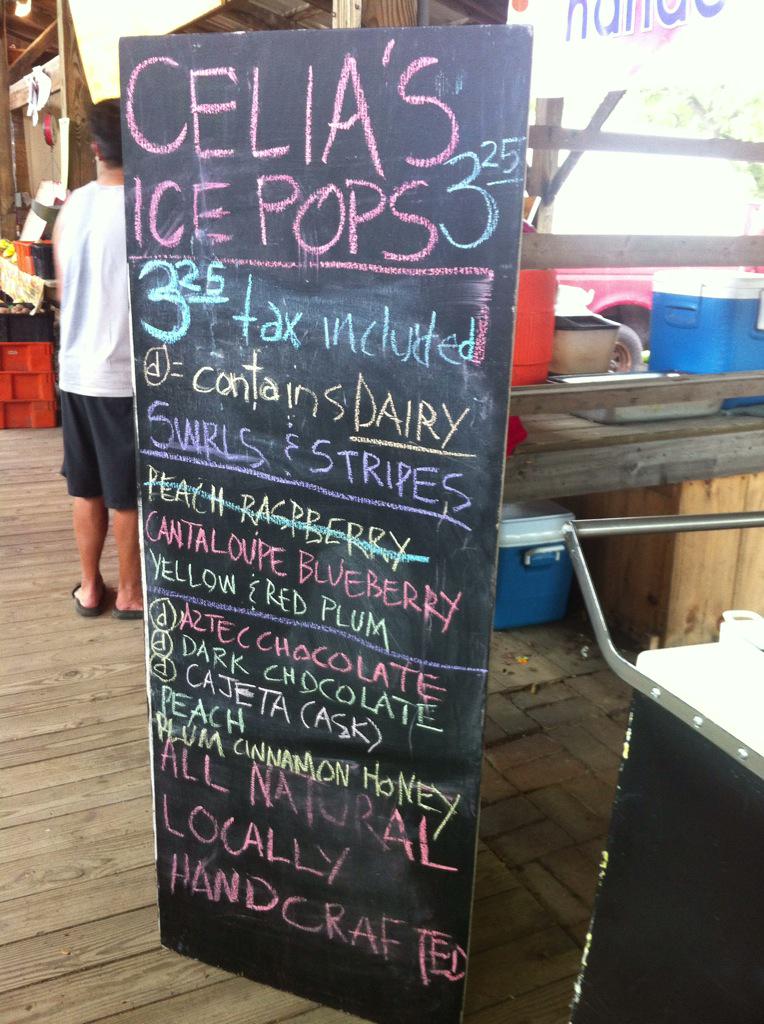 CELIA'S
ICE POPS 3 25
3 25 tax included
ⓓ = contains DAIRY
SWIRLS & STRIPES
PEACH RASPBERRY
CANTALOUPE BLUEBERRY
YELLOW & RED PLUM
ⓓ AZTEC CHOCOLATE
ⓓ DARK CHOCOLATE
ⓓ CAJETA (ASK)
PEACH
PLUM CINNAMON HONEY
ALL NATURAL
LOCALLY
HANDCRAFTED